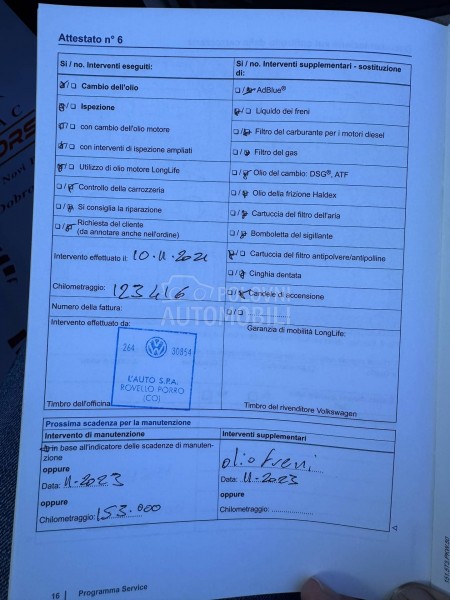 Attestato n° 6
Si / no. Interventi eseguiti:
Cambio dell'olio
Ispezione
con cambio dell'olio motore
con interventi di ispezione ampliati
Utilizzo di olio motore LongLife
Controllo della carrozzeria
Si consiglia la riparazione
Richiesta del cliente
(da annotare anche nell'ordine)
Intervento effettuato il: 10.11.2021
Chilometraggio: 123416
Numero della fattura:
Si / no. Interventi supplementari - sostituzione
di:
AdBlue®
Liquido dei freni
Filtro del carburante per i motori diesel
Filtro del gas
Olio del cambio: DSG®, ATF
Olio della frizione Haldex
Cartuccia del filtro dell'aria
Bomboletta del sigillante
Cartuccia del filtro antipolvere/antipolline
Cinghia dentata
Candele di accensione
POLOVNI
AUTOMOBILI
Intervento effettuato da:
264 30854
L'AUTO S.P.A.
ROVELLO PORRO
(CO)
Timbro dell'officina
Garanzia di mobilità LongLife:
Timbro del rivenditore Volkswagen
Prossima scadenza per la manutenzione
Intervento di manutenzione
in base all'indicatore delle scadenze di manuten-
zione
oppure
Data: 11-2023
oppure
Chilometraggio: 153.000
Interventi supplementari
olio freni
oppure
Data: 11-2023
oppure
Chilometraggio:
16 Programma Service